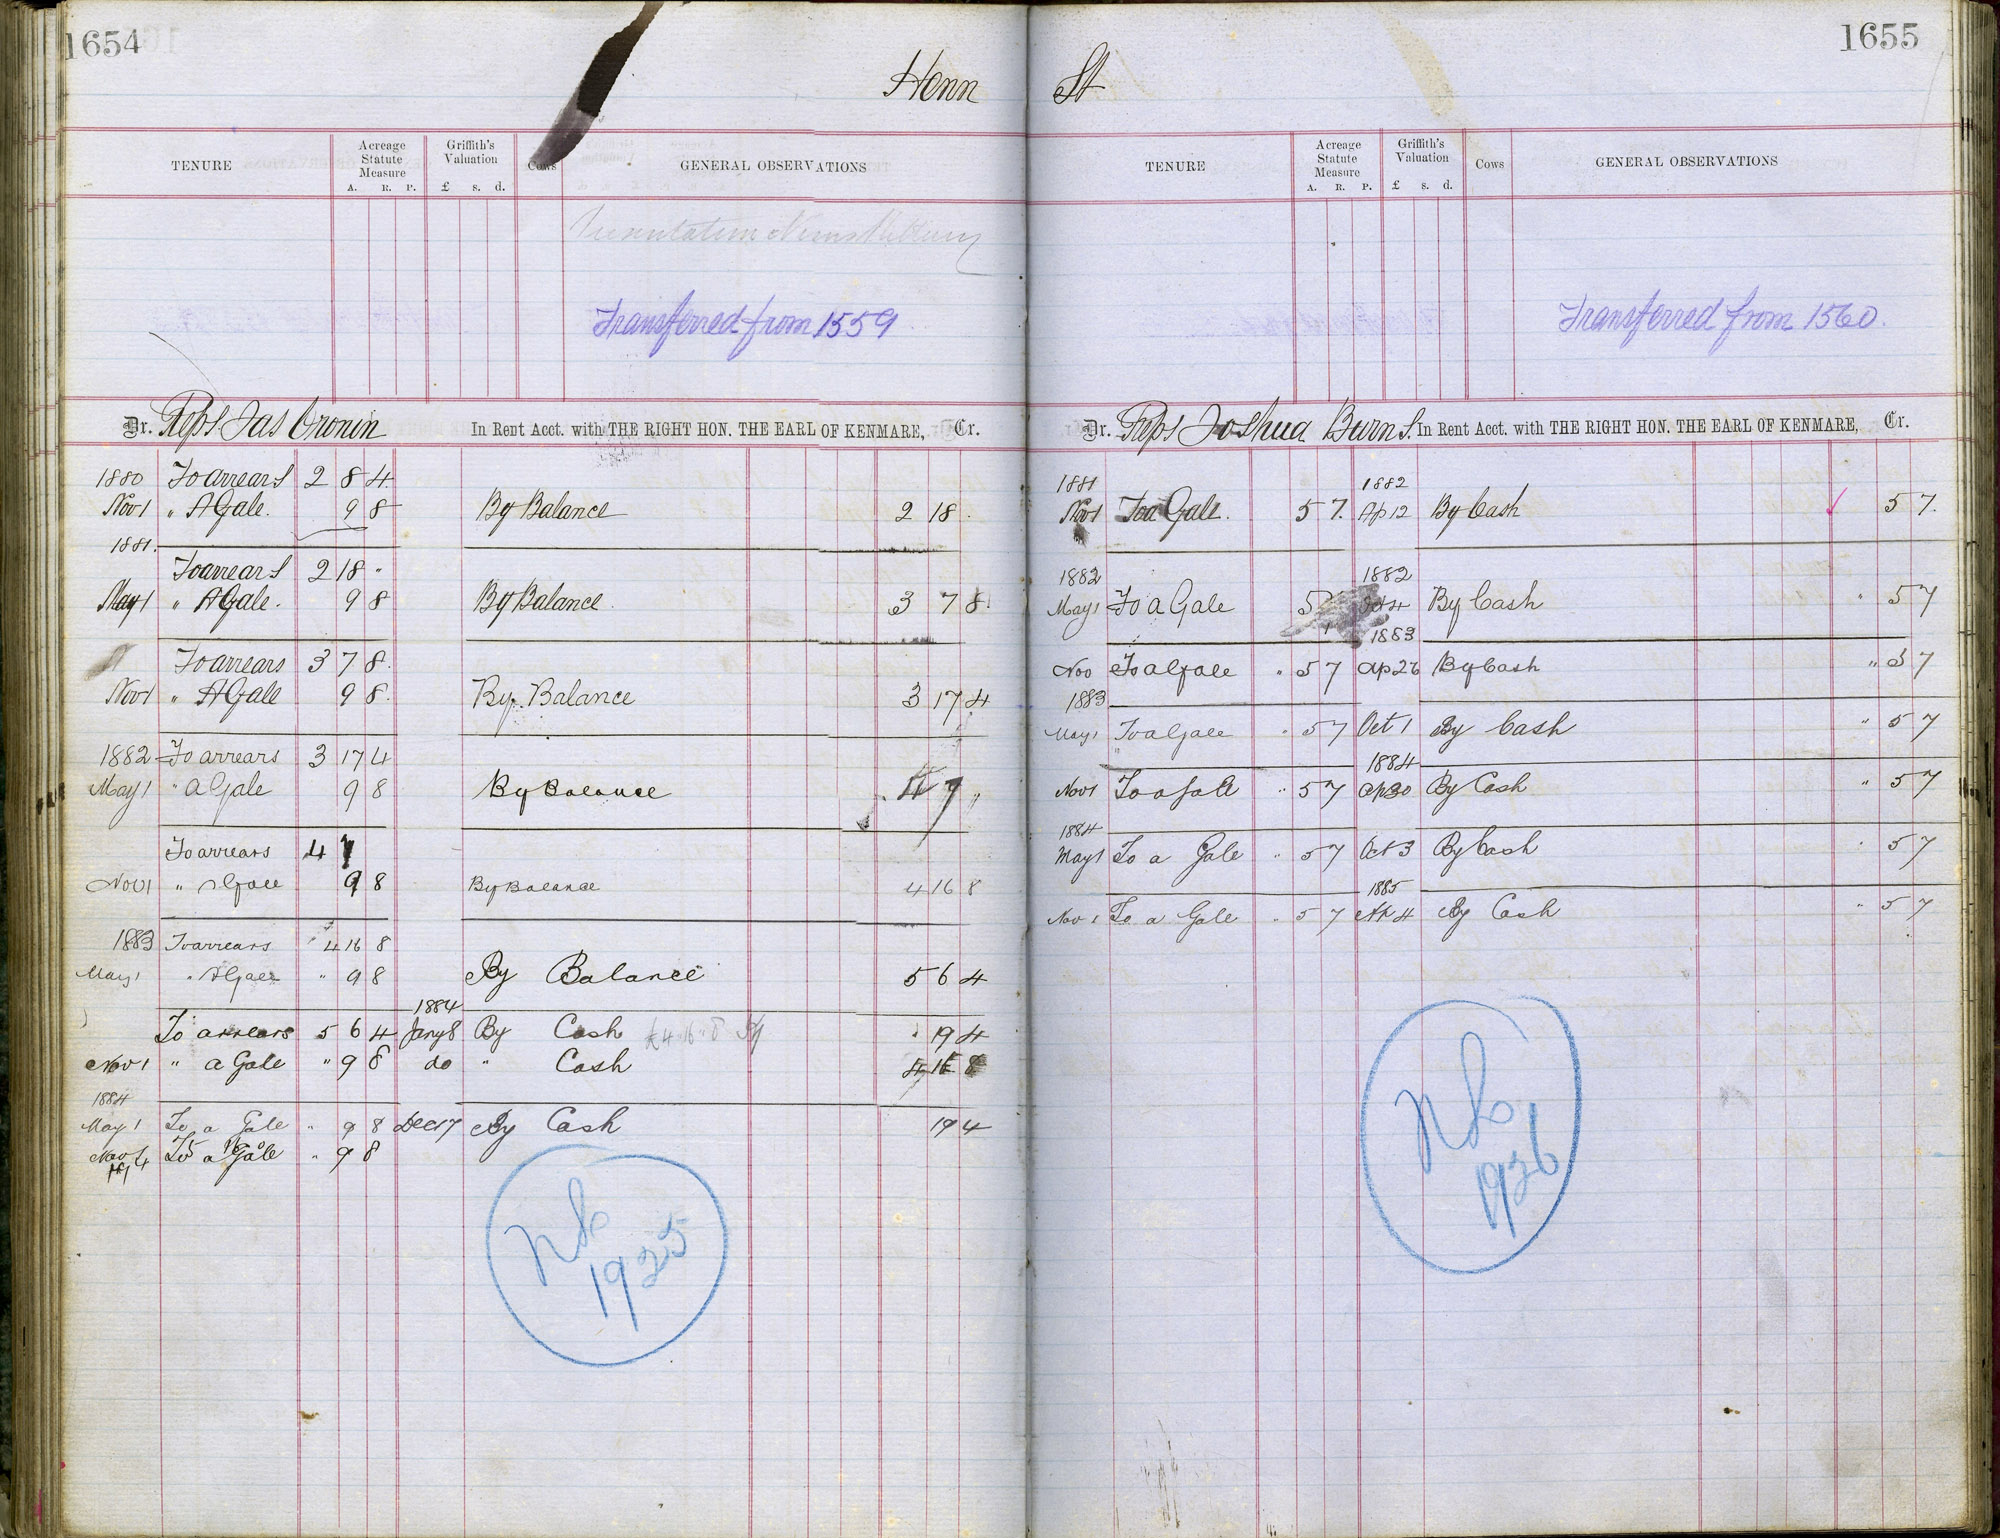 1654
Henn
TENURE
Acreage Statute Measure
A. R. P.
Griffith's Valuation
£ s. d.
Cows
GENERAL OBSERVATIONS
Transferred from 1559
Dr. Reps Jas Cronin In Rent Acct. with THE RIGHT HON. THE EARL OF KENMARE, Cr.
1880 To arrears 2 8 4
Nov 1 " A Gale. 9 8 By Balance 2 18 .
1881.
To arrears 2 18 "
May 1 " A Gale. 9 8 By Balance 3 7 8.
To arrears 3 7 8.
Nov 1 " A Gale 9 8. By Balance 3 17 4
1882 To arrears 3 17 4
May 1 " a Gale 9 8 By Balance 4 7 "
To arrears 4 7
Nov 1 " A Gale 9 8 By Balance 4 16 8
1883 To arrears 4 16 8
May 1 " A Gale " 9 8 By Balance 5 6 4
1884
To arrears 5 6 4 Jany 8 By Cash £4.16.8 " 19 4
Nov 1 " a Gale " 9 8 do " Cash 4 16 8
1884
May 1 To a Gale " 9 8 Dec 17 By Cash 19 4
Nov 1 To a Gale " 9 8
1925
1655
St
TENURE
Acreage Statute Measure
A. R. P.
Griffith's Valuation
£ s. d.
Cows
GENERAL OBSERVATIONS
Transferred from 1560.
Dr. Reps Joshua Burns. In Rent Acct. with THE RIGHT HON. THE EARL OF KENMARE, Cr.
1881 1882
Nov 1 To a Gale. 5 7. Ap 12 By Cash 5 7.
1882 1882
May 1 To a Gale 5 Oct 4 By Cash " 5 7
1883
Nov To a Gale " 5 7 Ap 26 By Cash " 5 7
1883
May 1 To a Gale " 5 7 Oct 1 By Cash " 5 7
1884
Nov 1 To a Gale " 5 7 Ap 30 By Cash " 5 7
1884
May 1 To a Gale " 5 7 Oct 3 By Cash " 5 7
1885
Nov 1 To a Gale " 5 7 4 By Cash " 5 7
1926